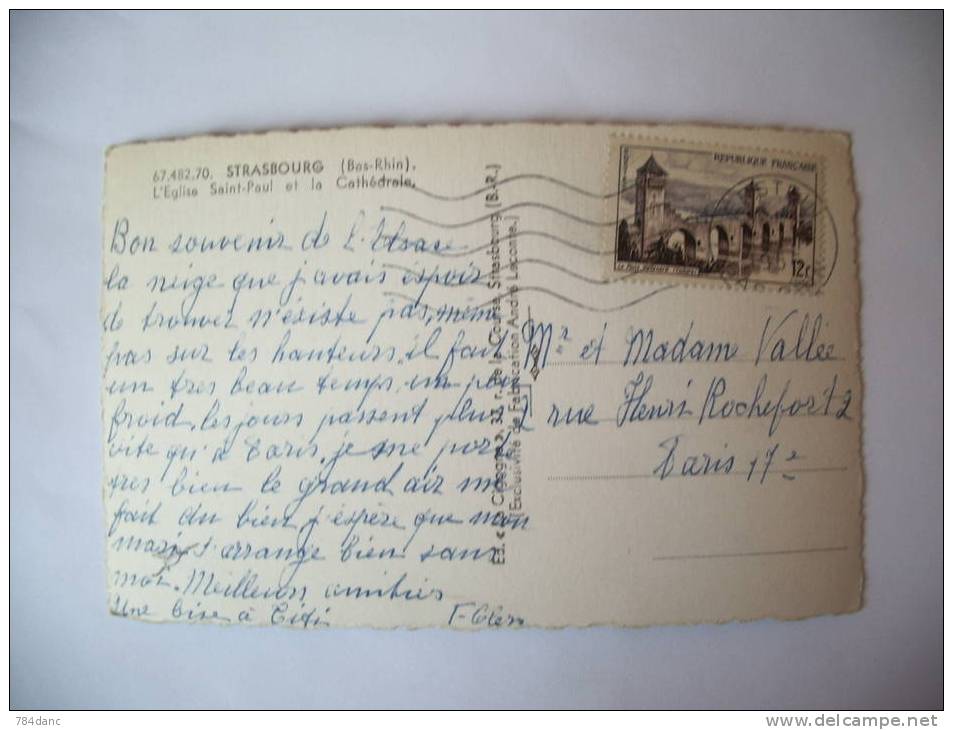 67.482.70. STRASBOURG (Bas-Rhin).
L'Eglise Saint-Paul et la Cathédrale.
Bon souvenir de l'Alsace
la neige que j'avais espoir
de trouver n'éxiste pas, même
pas sur les hauteurs, il fait
un tres beau temps, un peu
froid, les jours passent plus
vite qu'à Paris, je me porte
tres bien le grand air me
fait du bien j'espère que mon
mari s'arrange bien sans
moi. Meilleurs amitiés
Une bise à Titi
Ed. « La Cigogne », 33, r. de la Course, Strasbourg (B.-R.)
[Exclusivité de Fabrication André Leconte.]
REPUBLIQUE FRANÇAISE
LE PONT VALENTRE (CAHORS)
12F
Mr et Madame Vallée
2 rue Henri Rochefort 2
Paris 17e
784danc
www.delcampe.net